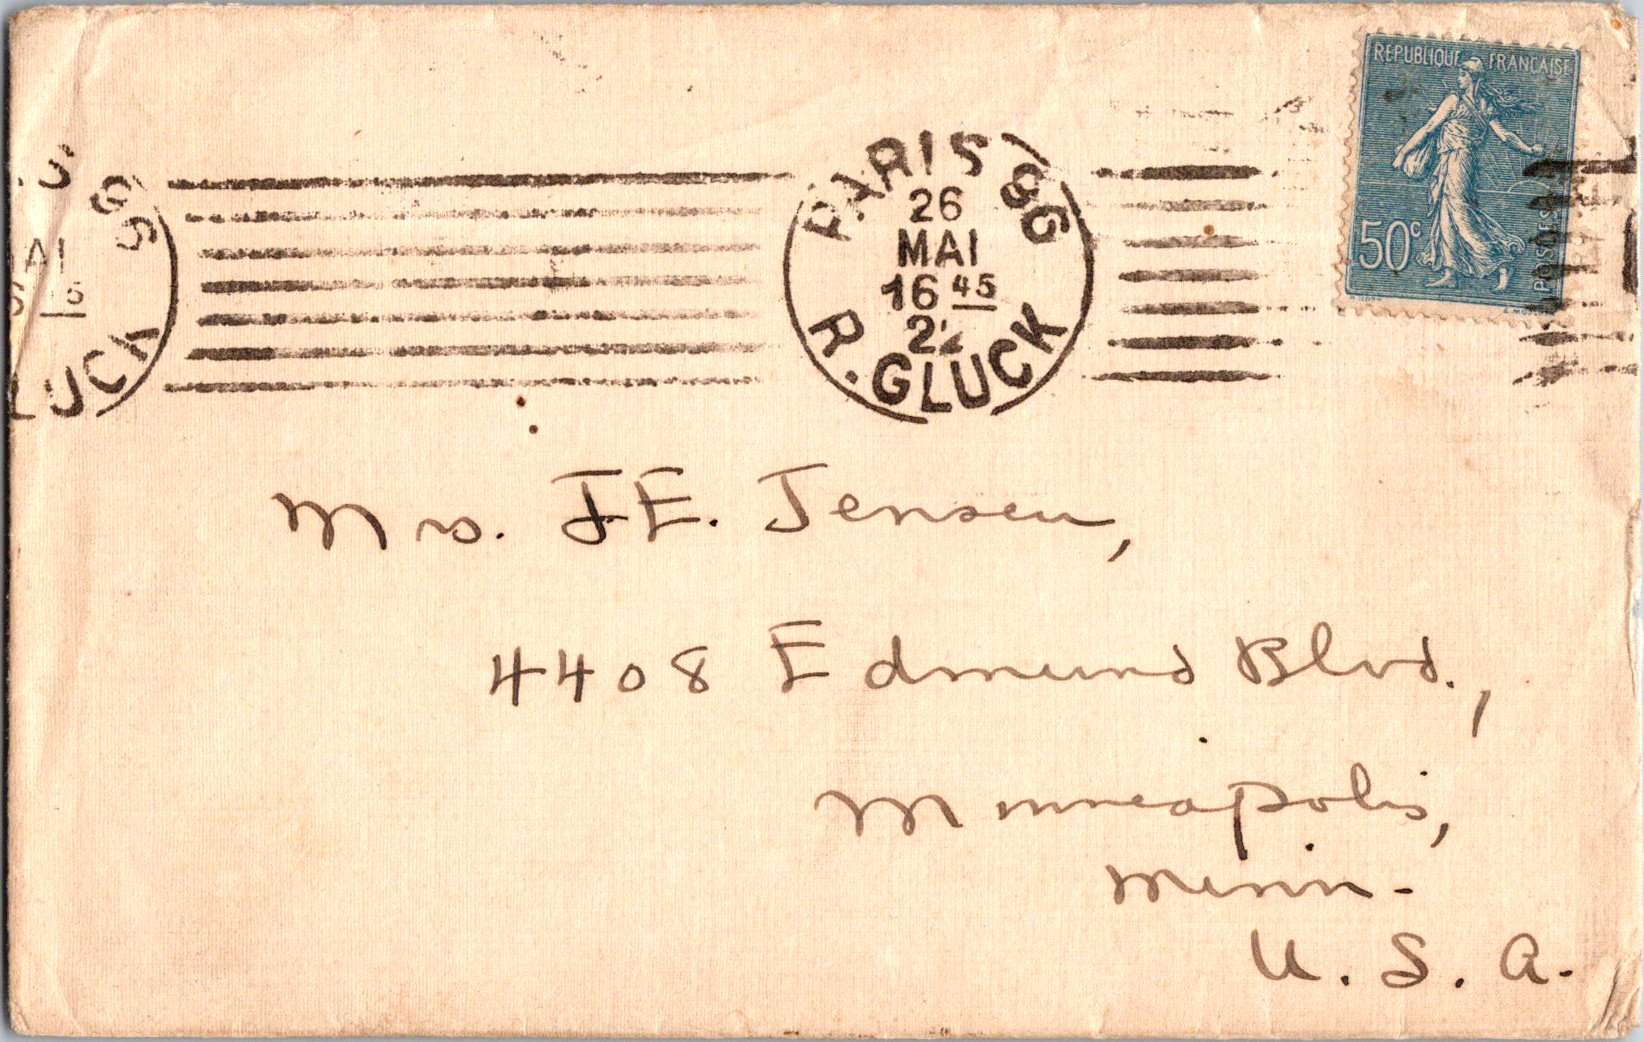 REPUBLIQUE FRANCAISE
50c
POSTES
PARIS 96
26
MAI
16 45
22
R. GLUCK
LUCK
Mrs. J.E. Jensen,
4408 Edmund Blvd.,
Minneapolis,
Minn-
U. S. A.